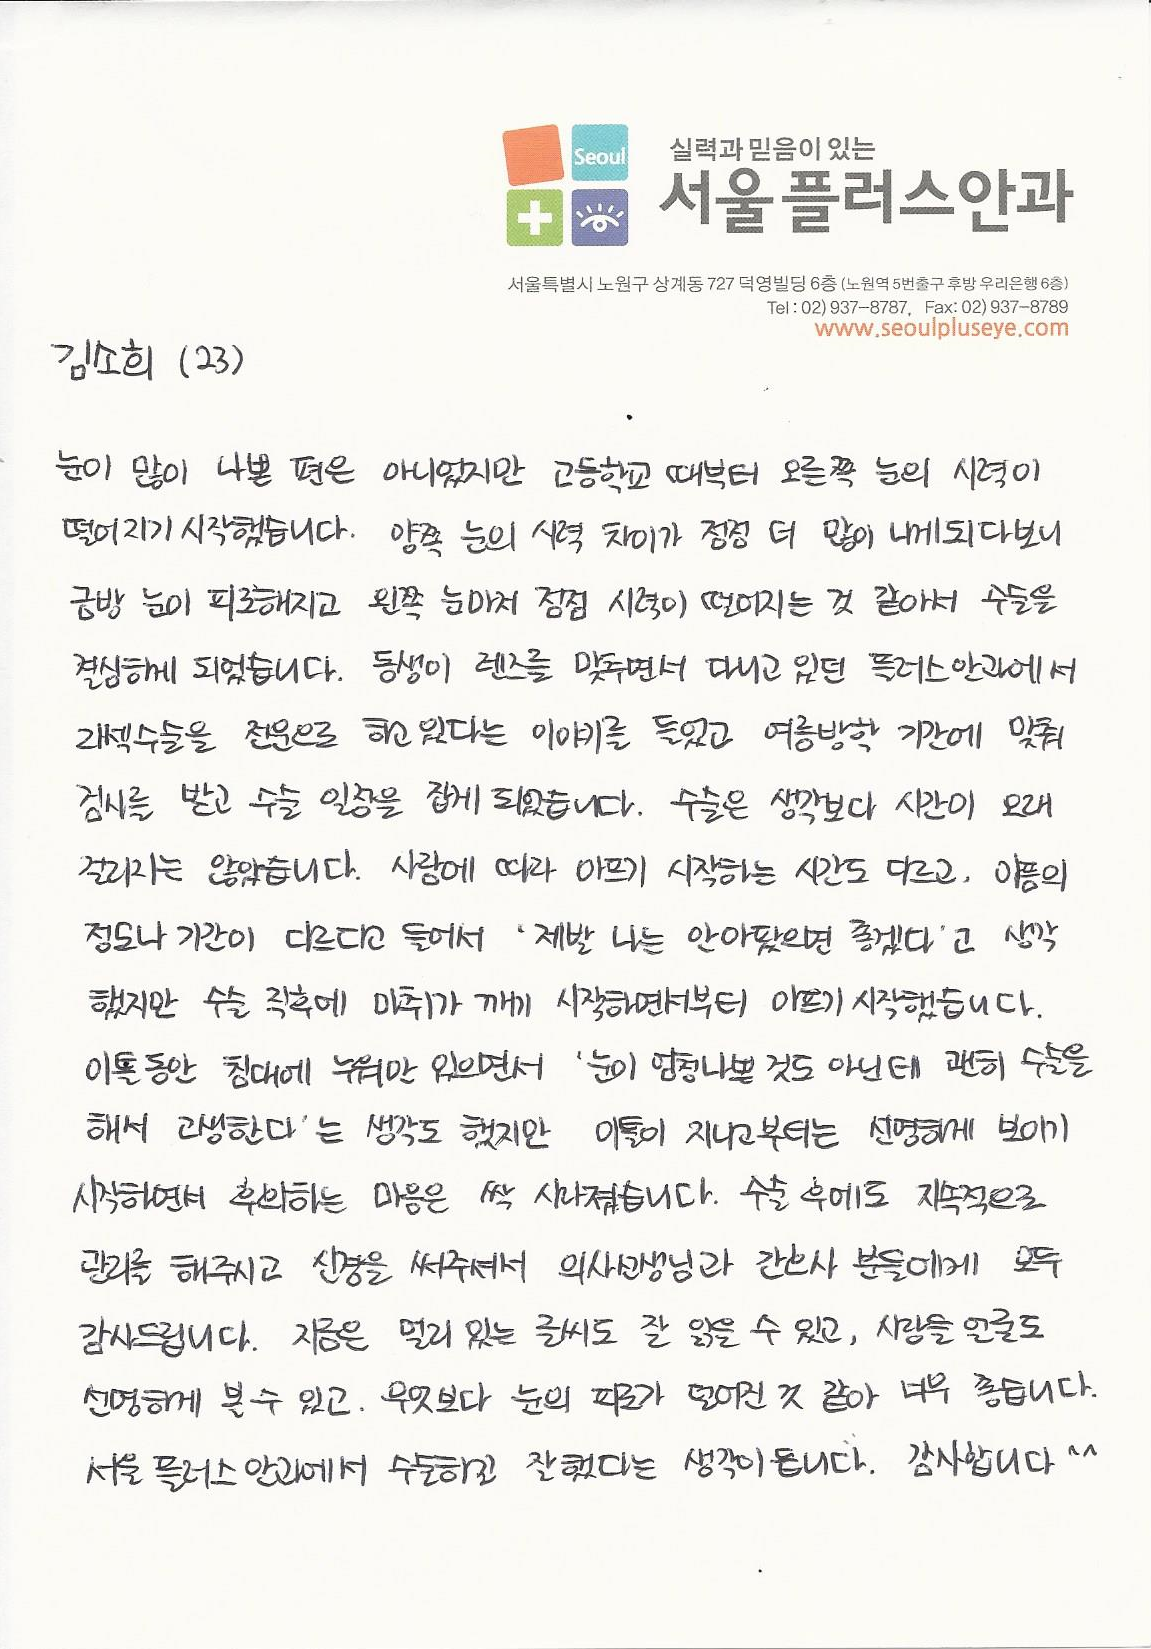 Seoul
실력과 믿음이 있는
서울플러스안과
서울특별시 노원구 상계동 727 덕영빌딩 6층 (노원역 5번출구 후방 우리은행 6층)
Tel : 02) 937-8787, Fax: 02) 937-8789
www.seoulpluseye.com
김소희 (23)
눈이 많이 나쁜 편은 아니었지만 고등학교 때부터 오른쪽 눈의 시력이
떨어지기 시작했습니다. 양쪽 눈의 시력 차이가 점점 더 많이 나게되다보니
금방 눈이 피로해지고 왼쪽 눈마저 점점 시력이 떨어지는 것 같아서 수술을
결심하게 되었습니다. 동생이 렌즈를 맞추면서 다니고 있던 플러스안과에서
라섹수술을 전문으로 하고 있다는 이야기를 들었고 여름방학 기간에 맞춰
검사를 받고 수술 일정을 잡게 되었습니다. 수술은 생각보다 시간이 오래
걸리지는 않았습니다. 사람에 따라 아프기 시작하는 시간도 다르고, 아픔의
정도나 기간이 다르다고 들어서 '제발 나는 안아팠으면 좋겠다'고 생각
했지만 수술 직후에 마취가 깨기 시작하면서부터 아프기 시작했습니다.
이틀동안 침대에 누워만 있으면서 '눈이 엄청나쁜 것도 아닌데 괜히 수술을
해서 고생한다'는 생각도 했지만 이틀이 지나고부터는 선명하게 보이기
시작하면서 후회하는 마음은 싹 사라졌습니다. 수술 후에도 지속적으로
관리를 해주시고 신경을 써주셔서 의사선생님과 간호사 분들에게 모두
감사드립니다. 지금은 멀리 있는 글씨도 잘 읽을 수 있고, 사람들 얼굴도
선명하게 볼 수 있고. 무엇보다 눈의 피로가 덜어진 것 같아 너무 좋습니다.
서울플러스안과에서 수술하고 잘했다는 생각이 듭니다. 감사합니다 ^^